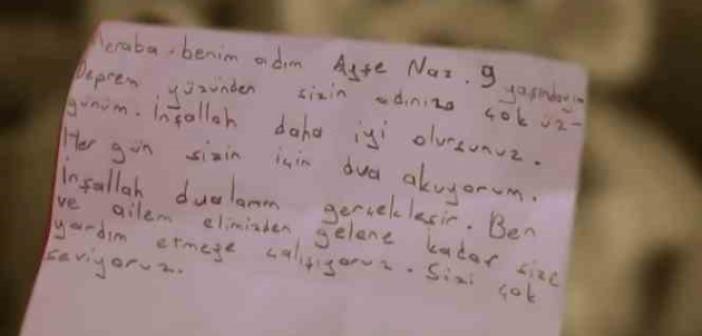 Meraba. benim adım Ayşe Naz. 9 yaşındayım
Deprem yüzünden sizin adınıza çok üz-
günüm. İnşallah daha iyi olursunuz.
Her gün sizin için dua akuyorum.
İnşallah dualarım gerçekleşir. Ben
ve ailem elimizden gelene kadar size
yardım etmeye çalışıyoruz. Sizi çok
seviyoruz.